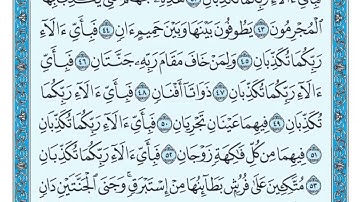 رَبِّكُمَا تُكَذِّبَانِ
ٱلْمُجْرِمُونَ ٤٣ يَطُوفُونَ بَيْنَهَا وَبَيْنَ حَمِيمٍ ءَانٍ ٤٤ فَبِأَيِّ ءَالَآءِ
رَبِّكُمَا تُكَذِّبَانِ ٤٥ وَلِمَنْ خَافَ مَقَامَ رَبِّهِۦ جَنَّتَانِ ٤٦ فَبِأَيِّ
ءَالَآءِ رَبِّكُمَا تُكَذِّبَانِ ٤٧ ذَوَاتَآ أَفْنَانٍ ٤٨ فَبِأَيِّ ءَالَآءِ رَبِّكُمَا
تُكَذِّبَانِ ٤٩ فِيهِمَا عَيْنَانِ تَجْرِيَانِ ٥٠ فَبِأَيِّ ءَالَآءِ رَبِّكُمَا تُكَذِّبَانِ
٥١ فِيهِمَا مِن كُلِّ فَٰكِهَةٍ زَوْجَانِ ٥٢ فَبِأَيِّ ءَالَآءِ رَبِّكُمَا تُكَذِّبَانِ
٥٣ مُتَّكِـِٔينَ عَلَىٰ فُرُشٍۭ بَطَآئِنُهَا مِنْ إِسْتَبْرَقٍ ۚ وَجَنَى ٱلْجَنَّتَيْنِ دَانٍ